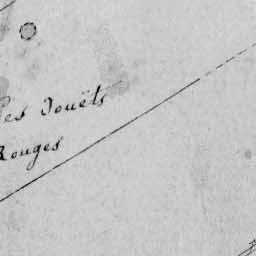 Les Jouëts
Rouges